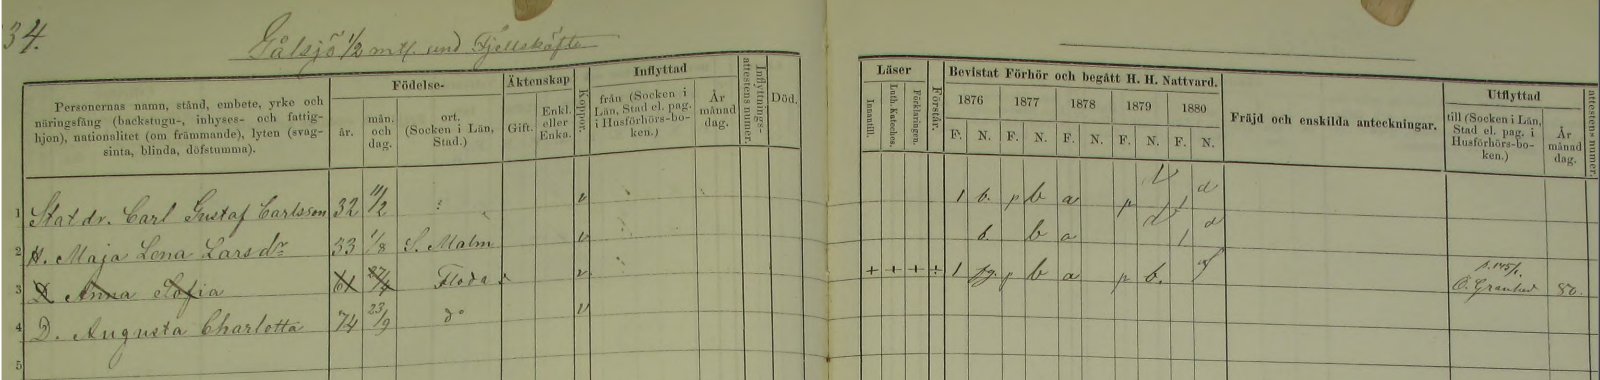 34.
Gålsjö 1/2 mtl. und Fjellskäfte
Personernas namn, stånd, embete, yrke och
näringsfång (backstugu-, inhyses- och fattig-
hjon), nationalitet (om främmande), lyten (svag-
sinta, blinda, döfstumma).
Födelse-
år.
mån.
och
dag.
ort.
(Socken i Län,
Stad.)
Äktenskap
Gift.
Enkl.
eller
Enka.
Koppor.
Inflyttad
från (Socken i
Län, Stad el. pag.
i Husförhörs-bo-
ken.)
År
månad
dag.
Inflyttnings-
attestens numer.
Död.
Läser
Innantill.
Luth. Kateches.
Förklaringen.
Förstår.
Bevistat Förhör och begått H. H. Nattvard.
1876 1877 1878 1879 1880
F. N. F. N. F. N. F. N. F. N.
Fräjd och enskilda anteckningar.
Utflyttad
till (Socken i Län,
Stad el. pag. i
Husförhörs-bo-
ken.)
År
månad
dag.
attestens numer.
1 Statdr. Carl Gustaf Carlsson 32 11/2 v 1 b. p b a p
2 H. Maja Lena Larsdr 33 1/8 S. Malm v b. b a d 1 d
3 D. Anna Sofia 61 27/4 Floda v + + + + 1 p b a p b. p. 145/1.
Ö. Granhed 80.
4 D. Augusta Charlotta 74 23/9 do v
5